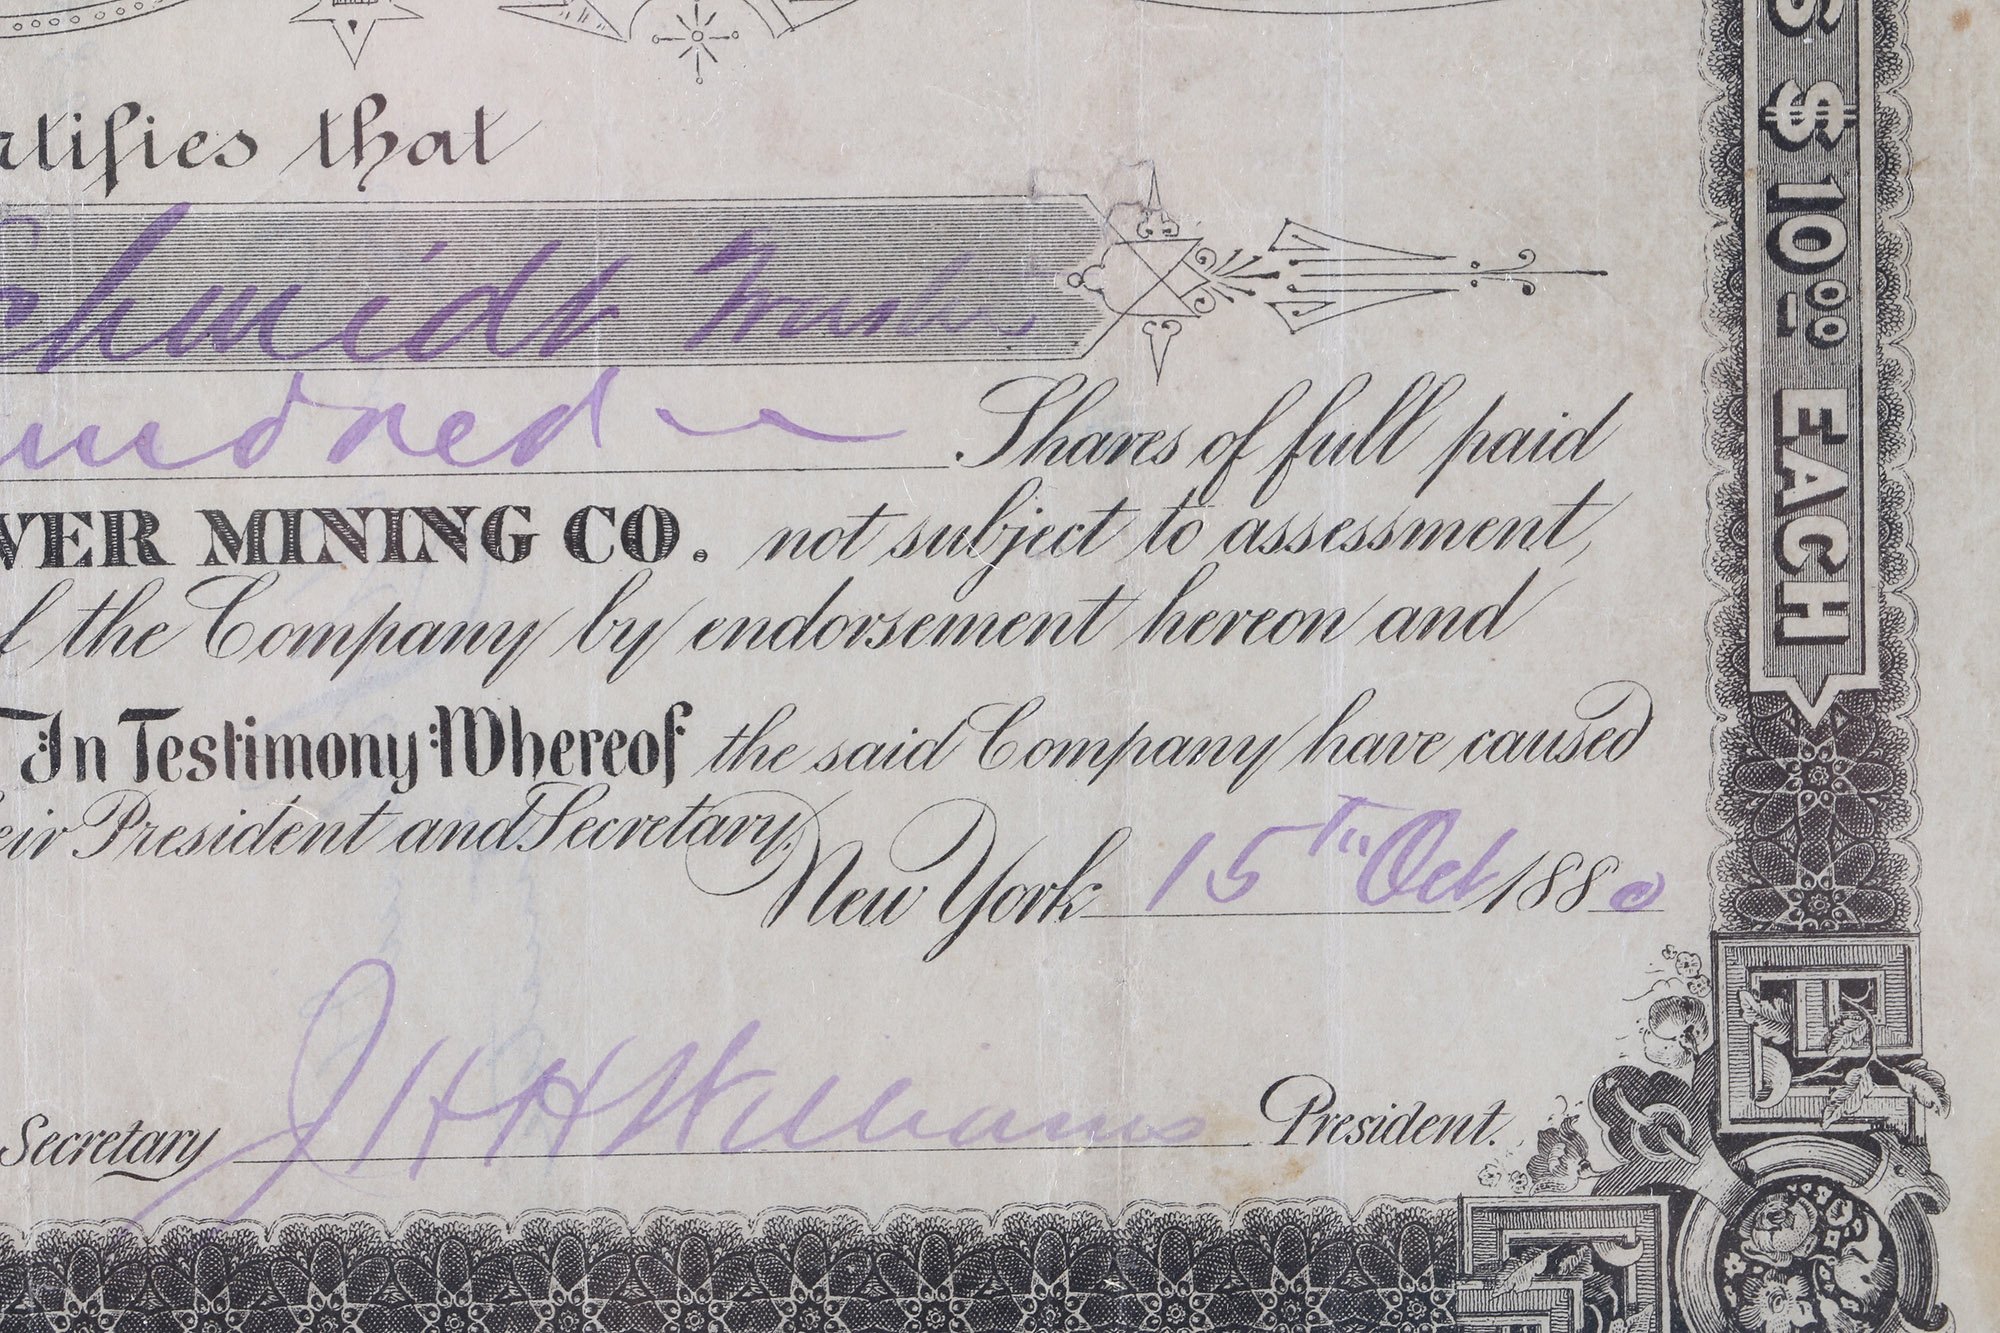 rtifies that
Schmidt Trustee
undred
Shares of full paid
VER MINING CO. not subject to assessment,
f the Company by endorsement hereon and
In Testimony Whereof the said Company have caused
eir President and Secretary.
New York 15th Oct 1880
Secretary J H H Williams President.
S $10.00 EACH